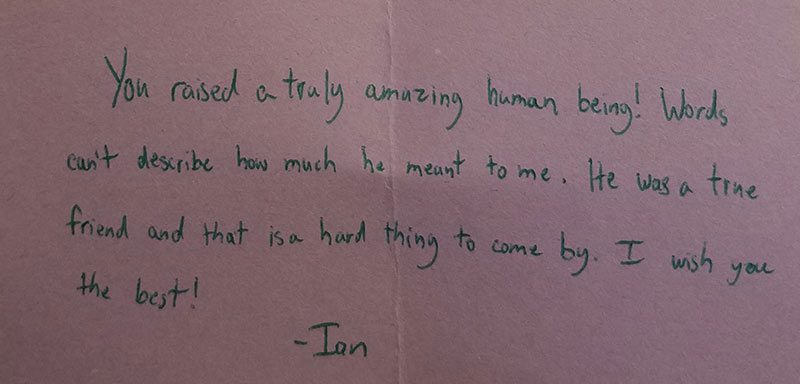 You raised a truly amazing human being! Words
can't describe how much he meant to me. He was a true
friend and that is a hard thing to come by. I wish you
the best!
-Ian